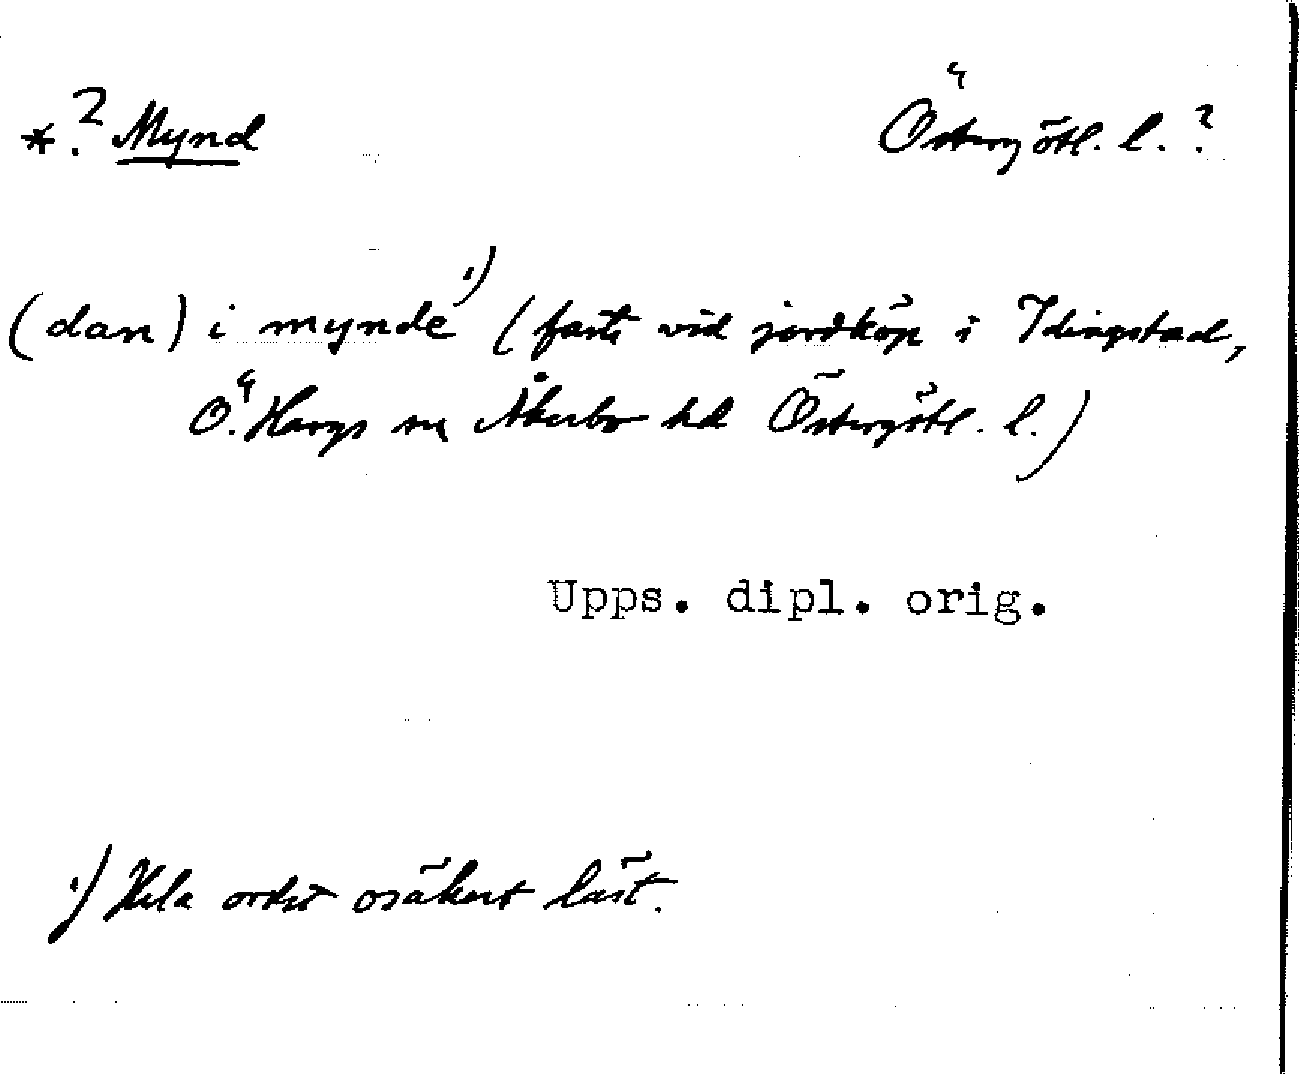 *? Mynd Östergötl. l. ?
(dan) i mynde ¹) (faste vid jordköp i Idingstad,
Ö. Hargs sn Åkerbo hd Östergötl. l.)
Upps. dipl. orig.
¹) Hela ordet osäkert läst.